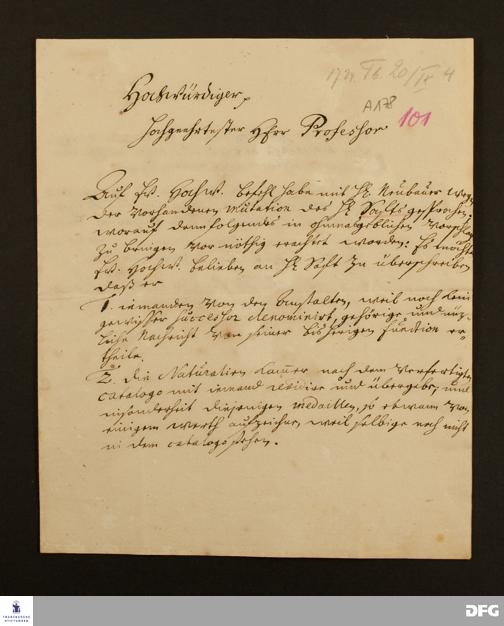 A178
101
Hochwürdiger,
Hochgeehrtester Herr Professor
Auf Ew. Hochw. befehl habe mit H. Neubauer wegen
der vorhandenen mutation des H. gesprochen,
worauf denn folgendes in ohnmaßgeblichen Vorschlag
zu bringen vor nöthig erachtet worden: Es möchten
Ew. Hochw. belieben an H. zu überschreiben
daß er
1. iemanden von den Anstalten, weil noch kein
gewisser successor denominirt, gehörige und
liche Nachricht von seiner bisherigen function er-
theile.
2. Die Naturalien Kamer nach dem verfertigten
catalogo mit iemand revidire und übergebe, und
insonderheit diejenigen medaillen, so etwann von
einigem werth aufzeichne, weil selbige noch nicht
in dem catalogo stehen.
FRANCKESCHE
STIFTUNGEN
DFG